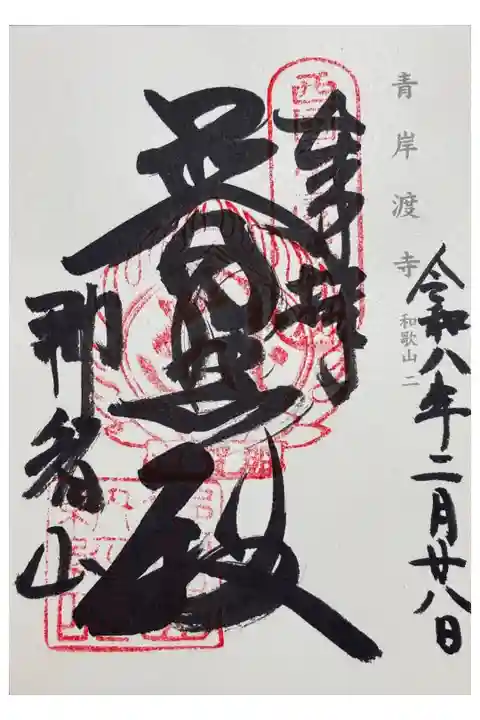 令和八年二月廿八日
青岸渡寺 和歌山 二
奉拝
普照殿
那智山